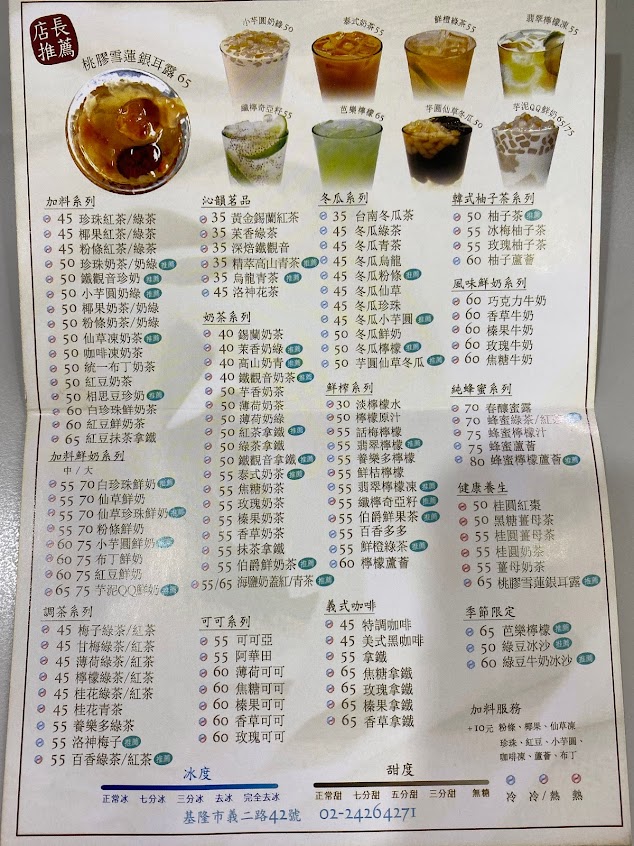 店長推薦
桃膠雪蓮銀耳露 65
小芋圓奶綠 50
泰式奶茶 55
鮮橙綠茶 55
翡翠檸檬凍 55
纖檸奇亞籽 55
芭樂檸檬 65
芋圓仙草冬瓜 50
芋泥QQ鮮奶 65/75
加料系列
45 珍珠紅茶/綠茶
45 椰果紅茶/綠茶
45 粉條紅茶/綠茶
50 珍珠奶茶/奶綠 推薦
50 鐵觀音珍奶 推薦
50 小芋圓奶綠 推薦
50 椰果奶茶/奶綠
50 粉條奶茶/奶綠
50 仙草凍奶茶 推薦
50 咖啡凍奶茶
50 統一布丁奶茶
50 紅豆奶茶
50 相思豆珍奶 推薦
60 白珍珠鮮奶茶
60 紅豆鮮奶茶
65 紅豆抹茶拿鐵
加料鮮奶系列
中 / 大
55 70 白珍珠鮮奶 推薦
55 70 仙草鮮奶
55 70 仙草珍珠鮮奶 推薦
55 70 粉條鮮奶
60 75 小芋圓鮮奶 推薦
60 75 布丁鮮奶
60 75 紅豆鮮奶
65 75 芋泥QQ鮮奶 推薦
調茶系列
45 梅子綠茶/紅茶
45 甘梅綠茶/紅茶
45 薄荷綠茶/紅茶
45 檸檬綠茶/紅茶
45 桂花綠茶/紅茶
45 桂花青茶
55 養樂多綠茶
55 洛神梅子 推薦
55 百香綠茶/紅茶 推薦
沁韻茗品
35 黃金錫蘭紅茶
35 茉香綠茶
35 深焙鐵觀音
35 精萃高山青茶 推薦
35 烏龍青茶 推薦
45 洛神花茶
奶茶系列
40 錫蘭奶茶
40 茉香奶綠 推薦
40 高山奶青 推薦
40 鐵觀音奶茶 推薦
50 芋香奶茶
50 薄荷奶茶
50 薄荷奶綠
50 紅茶拿鐵 推薦
50 綠茶拿鐵
50 鐵觀音拿鐵 推薦
55 泰式奶茶 推薦
55 焦糖奶茶
55 玫瑰奶茶
55 榛果奶茶
55 香草奶茶
55 抹茶拿鐵
55 伯爵鮮奶茶 推薦
55/65 海鹽奶蓋紅/青茶 推薦
可可系列
55 可可亞
55 阿華田
60 薄荷可可
60 焦糖可可
60 榛果可可
60 香草可可
60 玫瑰可可
冬瓜系列
35 台南冬瓜茶
45 冬瓜綠茶
45 冬瓜青茶
45 冬瓜烏龍
45 冬瓜粉條 推薦
45 冬瓜仙草
45 冬瓜珍珠
45 冬瓜小芋圓 推薦
50 冬瓜鮮奶
50 冬瓜檸檬 推薦
50 芋圓仙草冬瓜 推薦
鮮榨系列
30 淡檸檬水
50 檸檬原汁
55 話梅檸檬
55 翡翠檸檬 推薦
55 養樂多檸檬
55 鮮桔檸檬
55 翡翠檸檬凍 推薦
55 纖檸奇亞籽 推薦
55 伯爵鮮果茶 推薦
55 百香多多
55 鮮橙綠茶 推薦
60 檸檬蘆薈
義式咖啡
45 特調咖啡
45 美式黑咖啡
55 拿鐵
65 焦糖拿鐵
65 玫瑰拿鐵
65 榛果拿鐵
65 香草拿鐵
韓式柚子茶系列
50 柚子茶 推薦
55 冰梅柚子茶
55 玫瑰柚子茶
60 柚子蘆薈
風味鮮奶系列
60 巧克力牛奶
60 香草牛奶
60 榛果牛奶
60 玫瑰牛奶
60 焦糖牛奶
純蜂蜜系列
70 春釀蜜露
70 蜂蜜綠茶/紅茶 推薦
75 蜂蜜檸檬汁
75 蜂蜜蘆薈
80 蜂蜜檸檬蘆薈 推薦
健康養生
50 桂圓紅棗
50 黑糖薑母茶
55 桂圓薑母茶
55 桂圓奶茶
55 薑母奶茶
65 桃膠雪蓮銀耳露 推薦
季節限定
65 芭樂檸檬 推薦
50 綠豆冰沙 推薦
60 綠豆牛奶冰沙 推薦
加料服務
+10元 粉條、椰果、仙草凍
珍珠、紅豆、小芋圓、
咖啡凍、蘆薈、布丁
冷 冷/熱 熱
冰度
正常冰 七分冰 三分冰 去冰 完全去冰
甜度
正常甜 七分甜 五分甜 三分甜 無糖
基隆市義二路42號 02-24264271